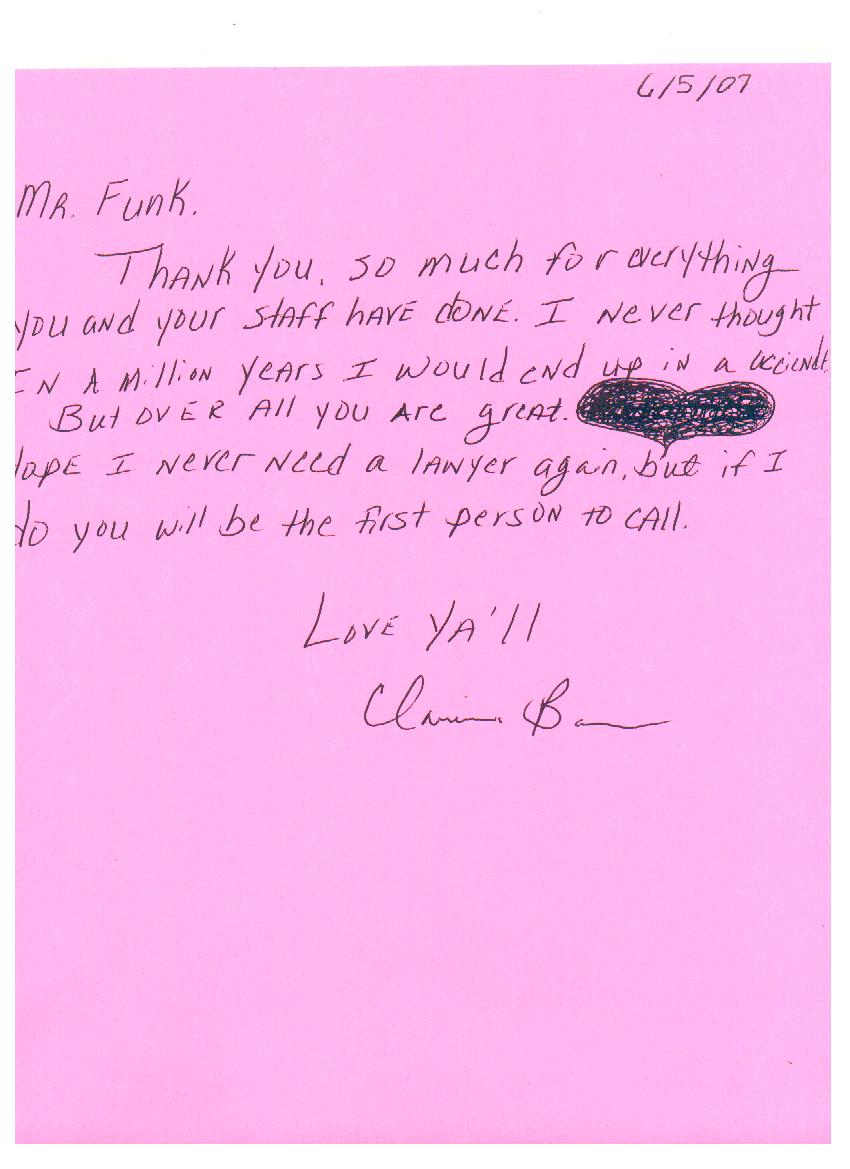 6/5/07
Mr. Funk.
Thank you, so much for everything
you and your staff have done. I never thought
In a million years I would end up in a acciendt.
But over all you are great.
Hope I never need a lawyer again, but if I
do you will be the first person to call.
Love Ya'll